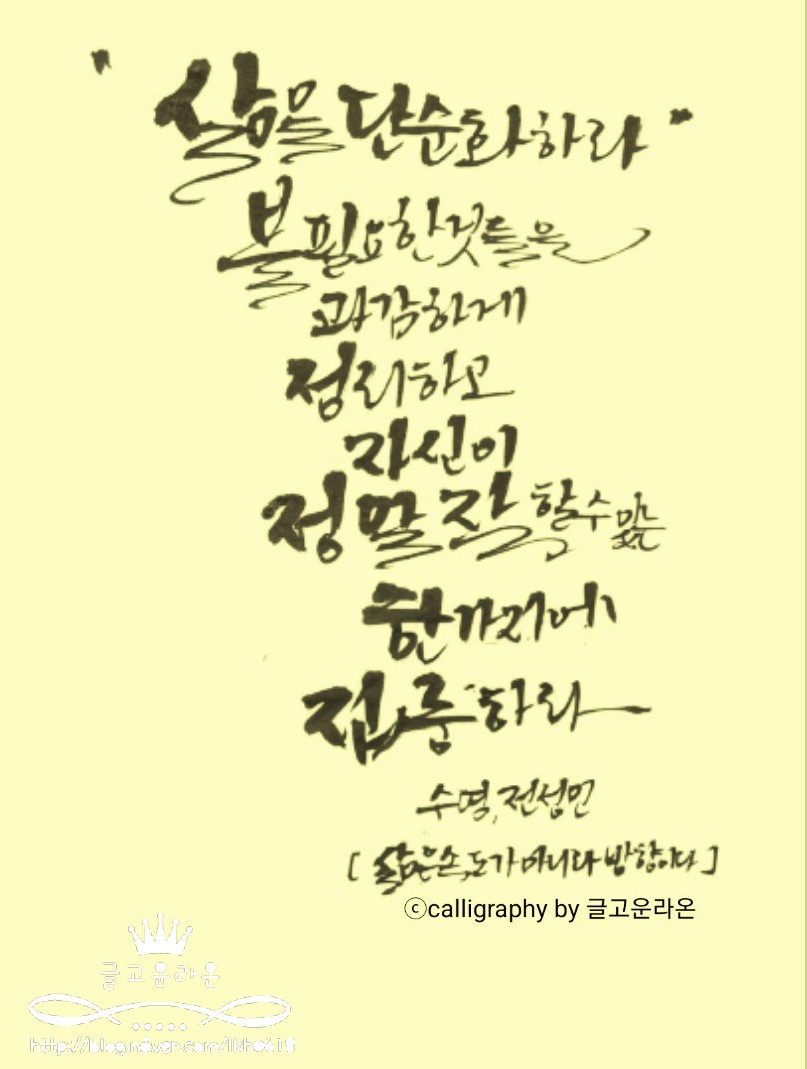 "삶을 단순화하라"
불필요한것들을
과감하게
정리하고
자신이
정말 잘 할 수 있는
한가지에
집중하라
수영, 전성민
[삶은 속도가 아니라 방향이다]
ⓒcalligraphy by 글고운라온
글고운라온